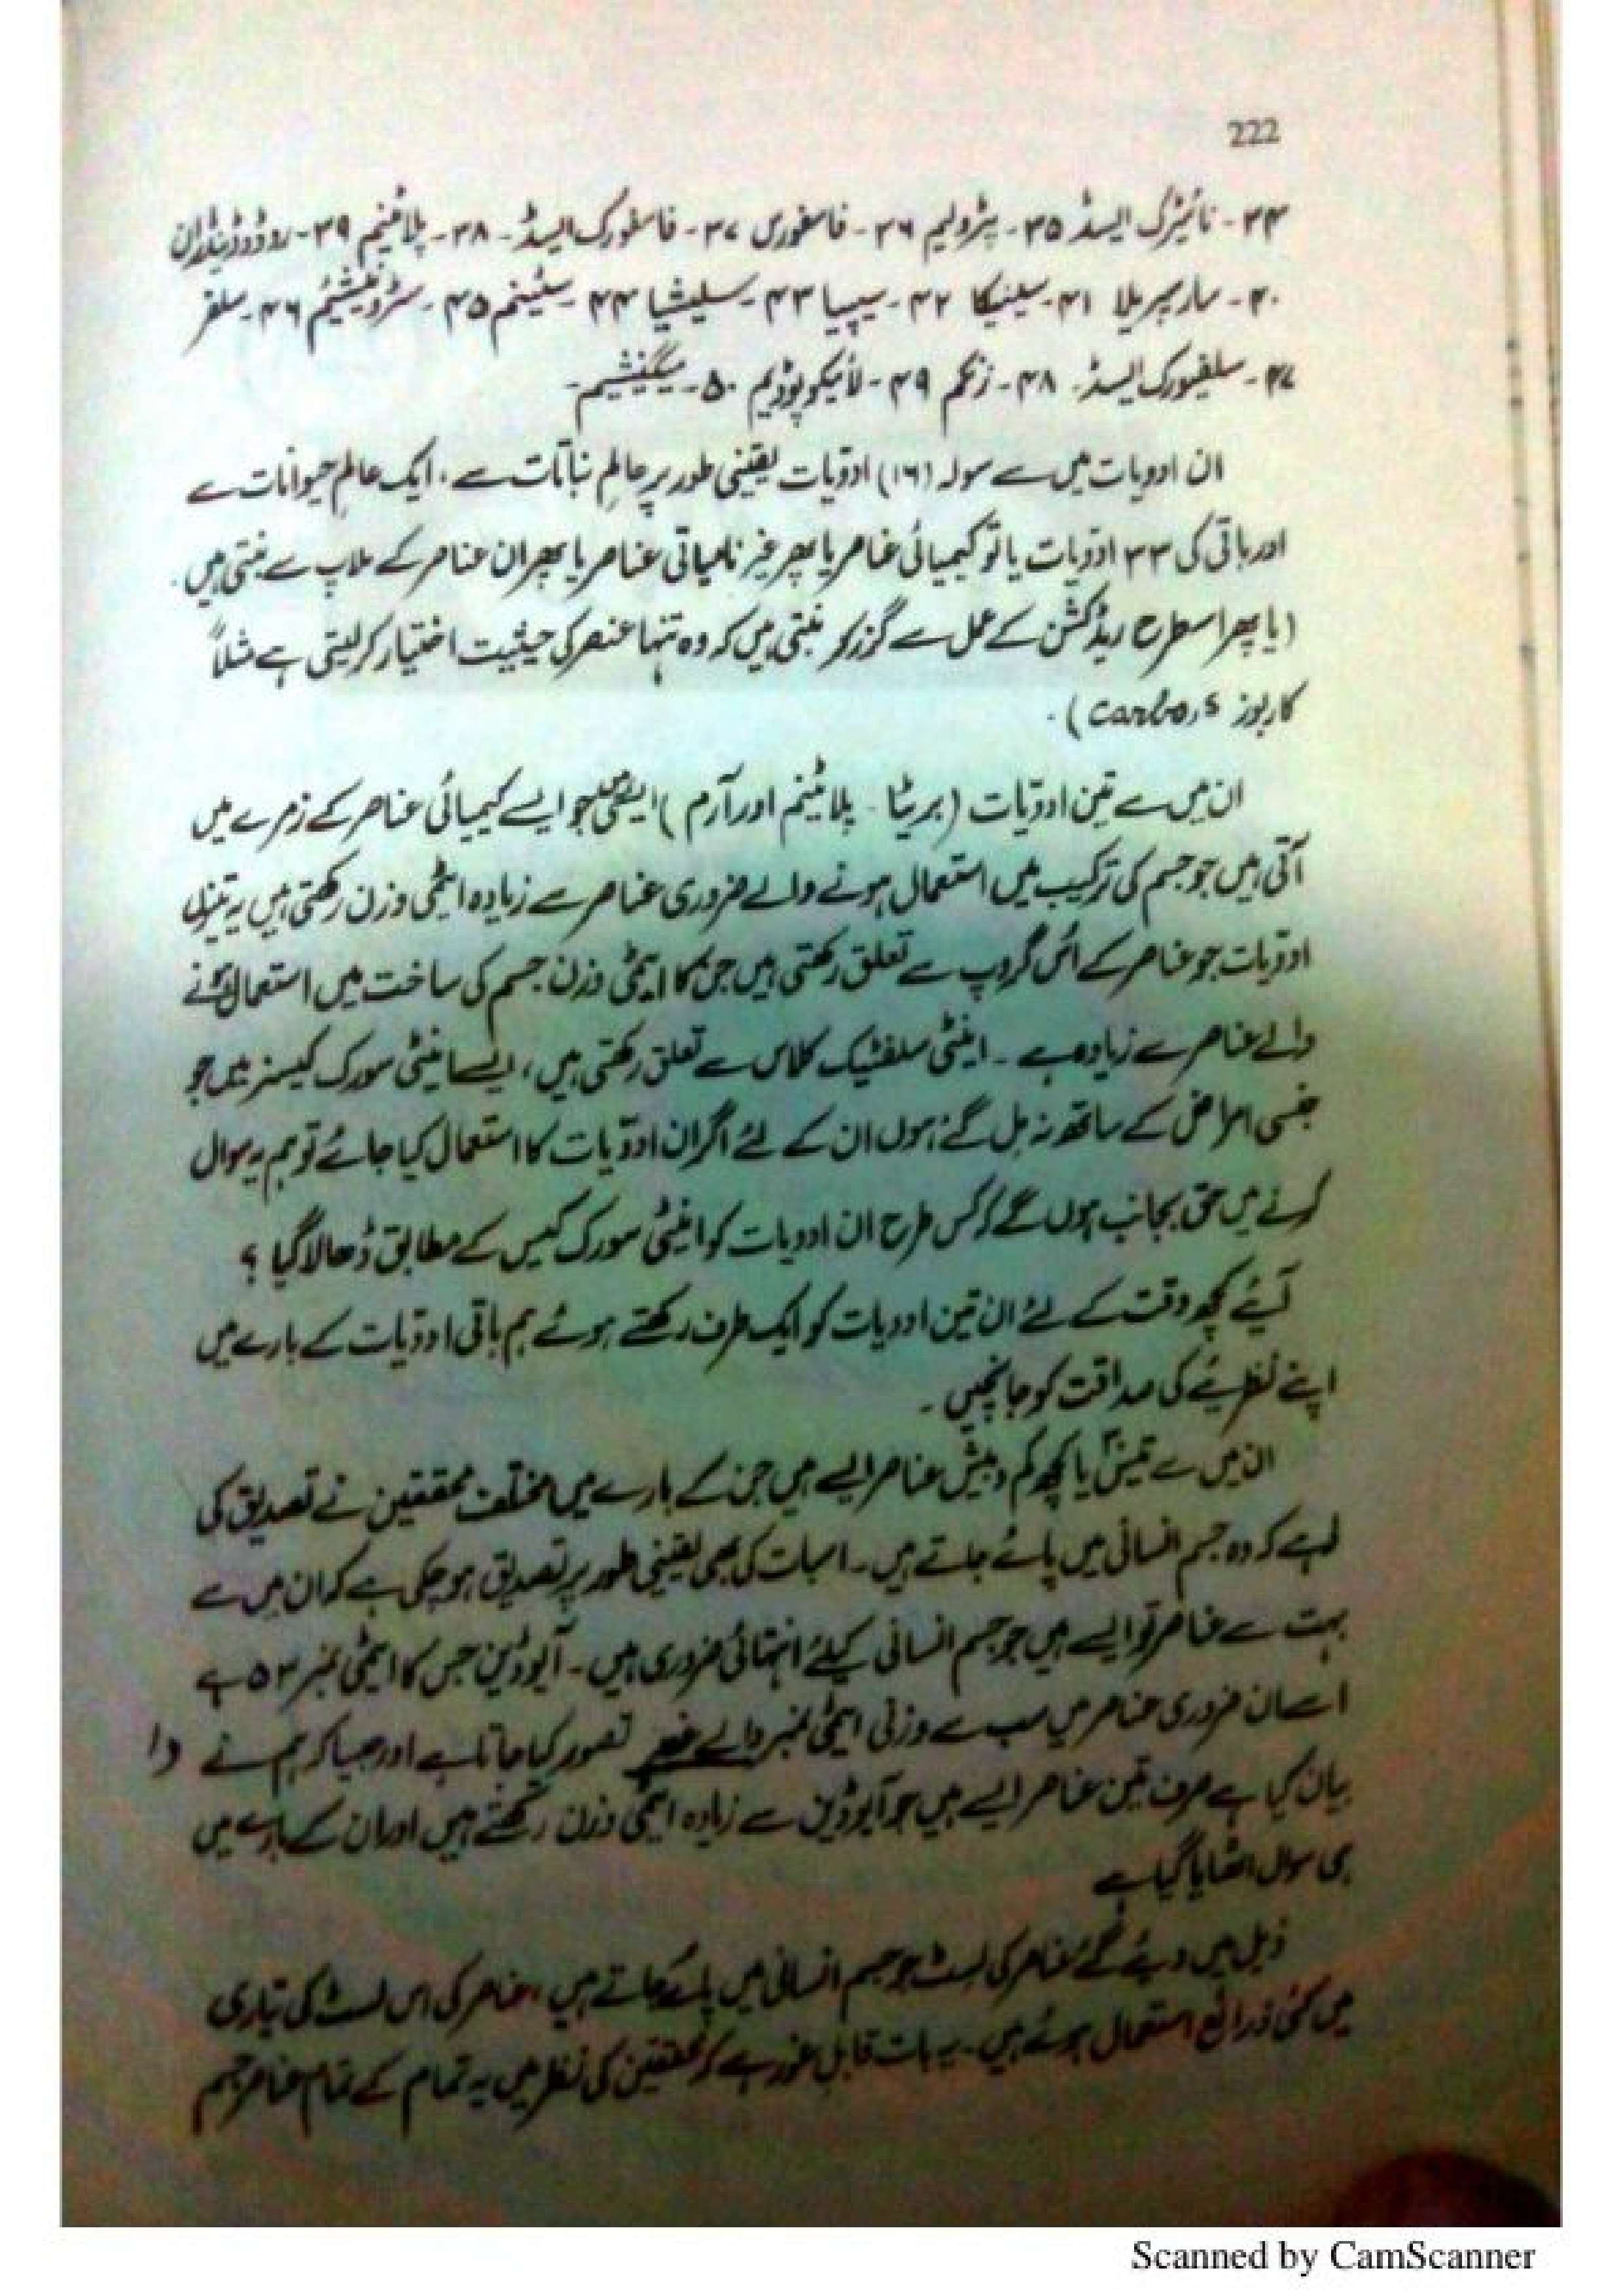 222
۳۴- نائیٹرک ایسڈ ۳۵- پٹرولیم ۳۶- فاسفورس ۳۷- فاسفورک ایسڈ- ۳۸- پلاٹینم ۳۹- روڈوڈینڈران
۴۰- سارسپریلا ۴۱- سیلنیکا ۴۲- سیپیا ۴۳- سلیشیا ۴۴- سٹینم ۴۵- سٹرونشیئم ۴۶- سلفر
۴۷- سلفیورک ایسڈ- ۴۸- زنکم ۴۹- لائیکوپوڈیم ۵۰- میگنیشیم-
ان ادویات میں سے سولہ (۱۶) ادویات یقینی طور پر عالم نباتات سے، ایک عالم حیوانات سے
اور باقی کی ۳۳ ادویات یا تو کیمیائی عناصر یا پھر غیر نامیاتی عناصر یا پھر ان عناصر کے ملاپ سے بنتی ہیں۔
(یا پھر اسطرح ریڈکشن کے عمل سے گزر کر بنتی ہیں کہ وہ تنہا عنصر کی حیثیت اختیار کر لیتی ہے مثلاً
کاربوز Carbo,s)۔
ان میں سے تین ادویات (بریٹا- پلاٹینم اور آرم) ایسی ہیں جو ایسے کیمیائی عناصر کے زمرے میں
آتی ہیں جو جسم کی ترکیب میں استعمال ہونے والے ضروری عناصر سے زیادہ ایٹمی وزن رکھتی ہیں یہ تینوں
ادویات جو عناصر کے اُس گروپ سے تعلق رکھتی ہیں جن کا ایٹمی وزن جسم کی ساخت میں استعمال ہونے
والے عناصر سے زیادہ ہے۔ اینٹی سلفٹیک کلاس سے تعلق رکھتی ہیں، ایسے اینٹی سورک کیسز میں جو
جنسی امراض کے ساتھ نہ مل گئے ہوں ان کے لئے اگر ان ادویات کا استعمال کیا جائے تو ہم یہ سوال
کرنے میں حق بجانب ہوں گے کہ کس طرح ان ادویات کو اینٹی سورک کیس کے مطابق ڈھالا گیا؟
آیئے کچھ وقت کے لئے ان تین ادویات کو ایک طرف رکھتے ہوئے ہم باقی ادویات کے بارے میں
اپنے نظریئے کی صداقت کو جانچیں۔
ان میں سے یا کچھ کم و بیش عناصر ایسے ہیں جن کے بارے میں مختلف محققین نے تصدیق کی
ہے کہ وہ جسم انسانی میں پائے جاتے ہیں۔ اسبات کی بھی یقینی طور پر تصدیق ہو چکی ہے کہ ان میں سے
بہت سے عناصر تو ایسے ہیں جو جسم انسانی کیلئے انتہائی ضروری ہیں۔ آیوڈین جس کا ایٹمی نمبر ۵۳ ہے
اسے ان ضروری عناصر میں سب سے وزنی ایٹمی نمبر والے عنصر تصور کیا جاتا ہے اور جیسا کہ ہم نے
بیان کیا ہے صرف تین عناصر ایسے ہیں جو آیوڈین سے زیادہ ایٹمی وزن رکھتے ہیں اور ان کے بارے میں
ہی سوال اٹھایا گیا ہے
ذیل میں دیئے گئے عناصر کی لسٹ جو جسم انسانی میں پائے جاتے ہیں، عناصر کی اس لسٹ کی تیاری
میں کئی ذرائع استعمال ہوئے ہیں۔ یہ بات قابل غور ہے کہ محققین کی نظر میں یہ تمام کے تمام عناصر جسم
Scanned by CamScanner